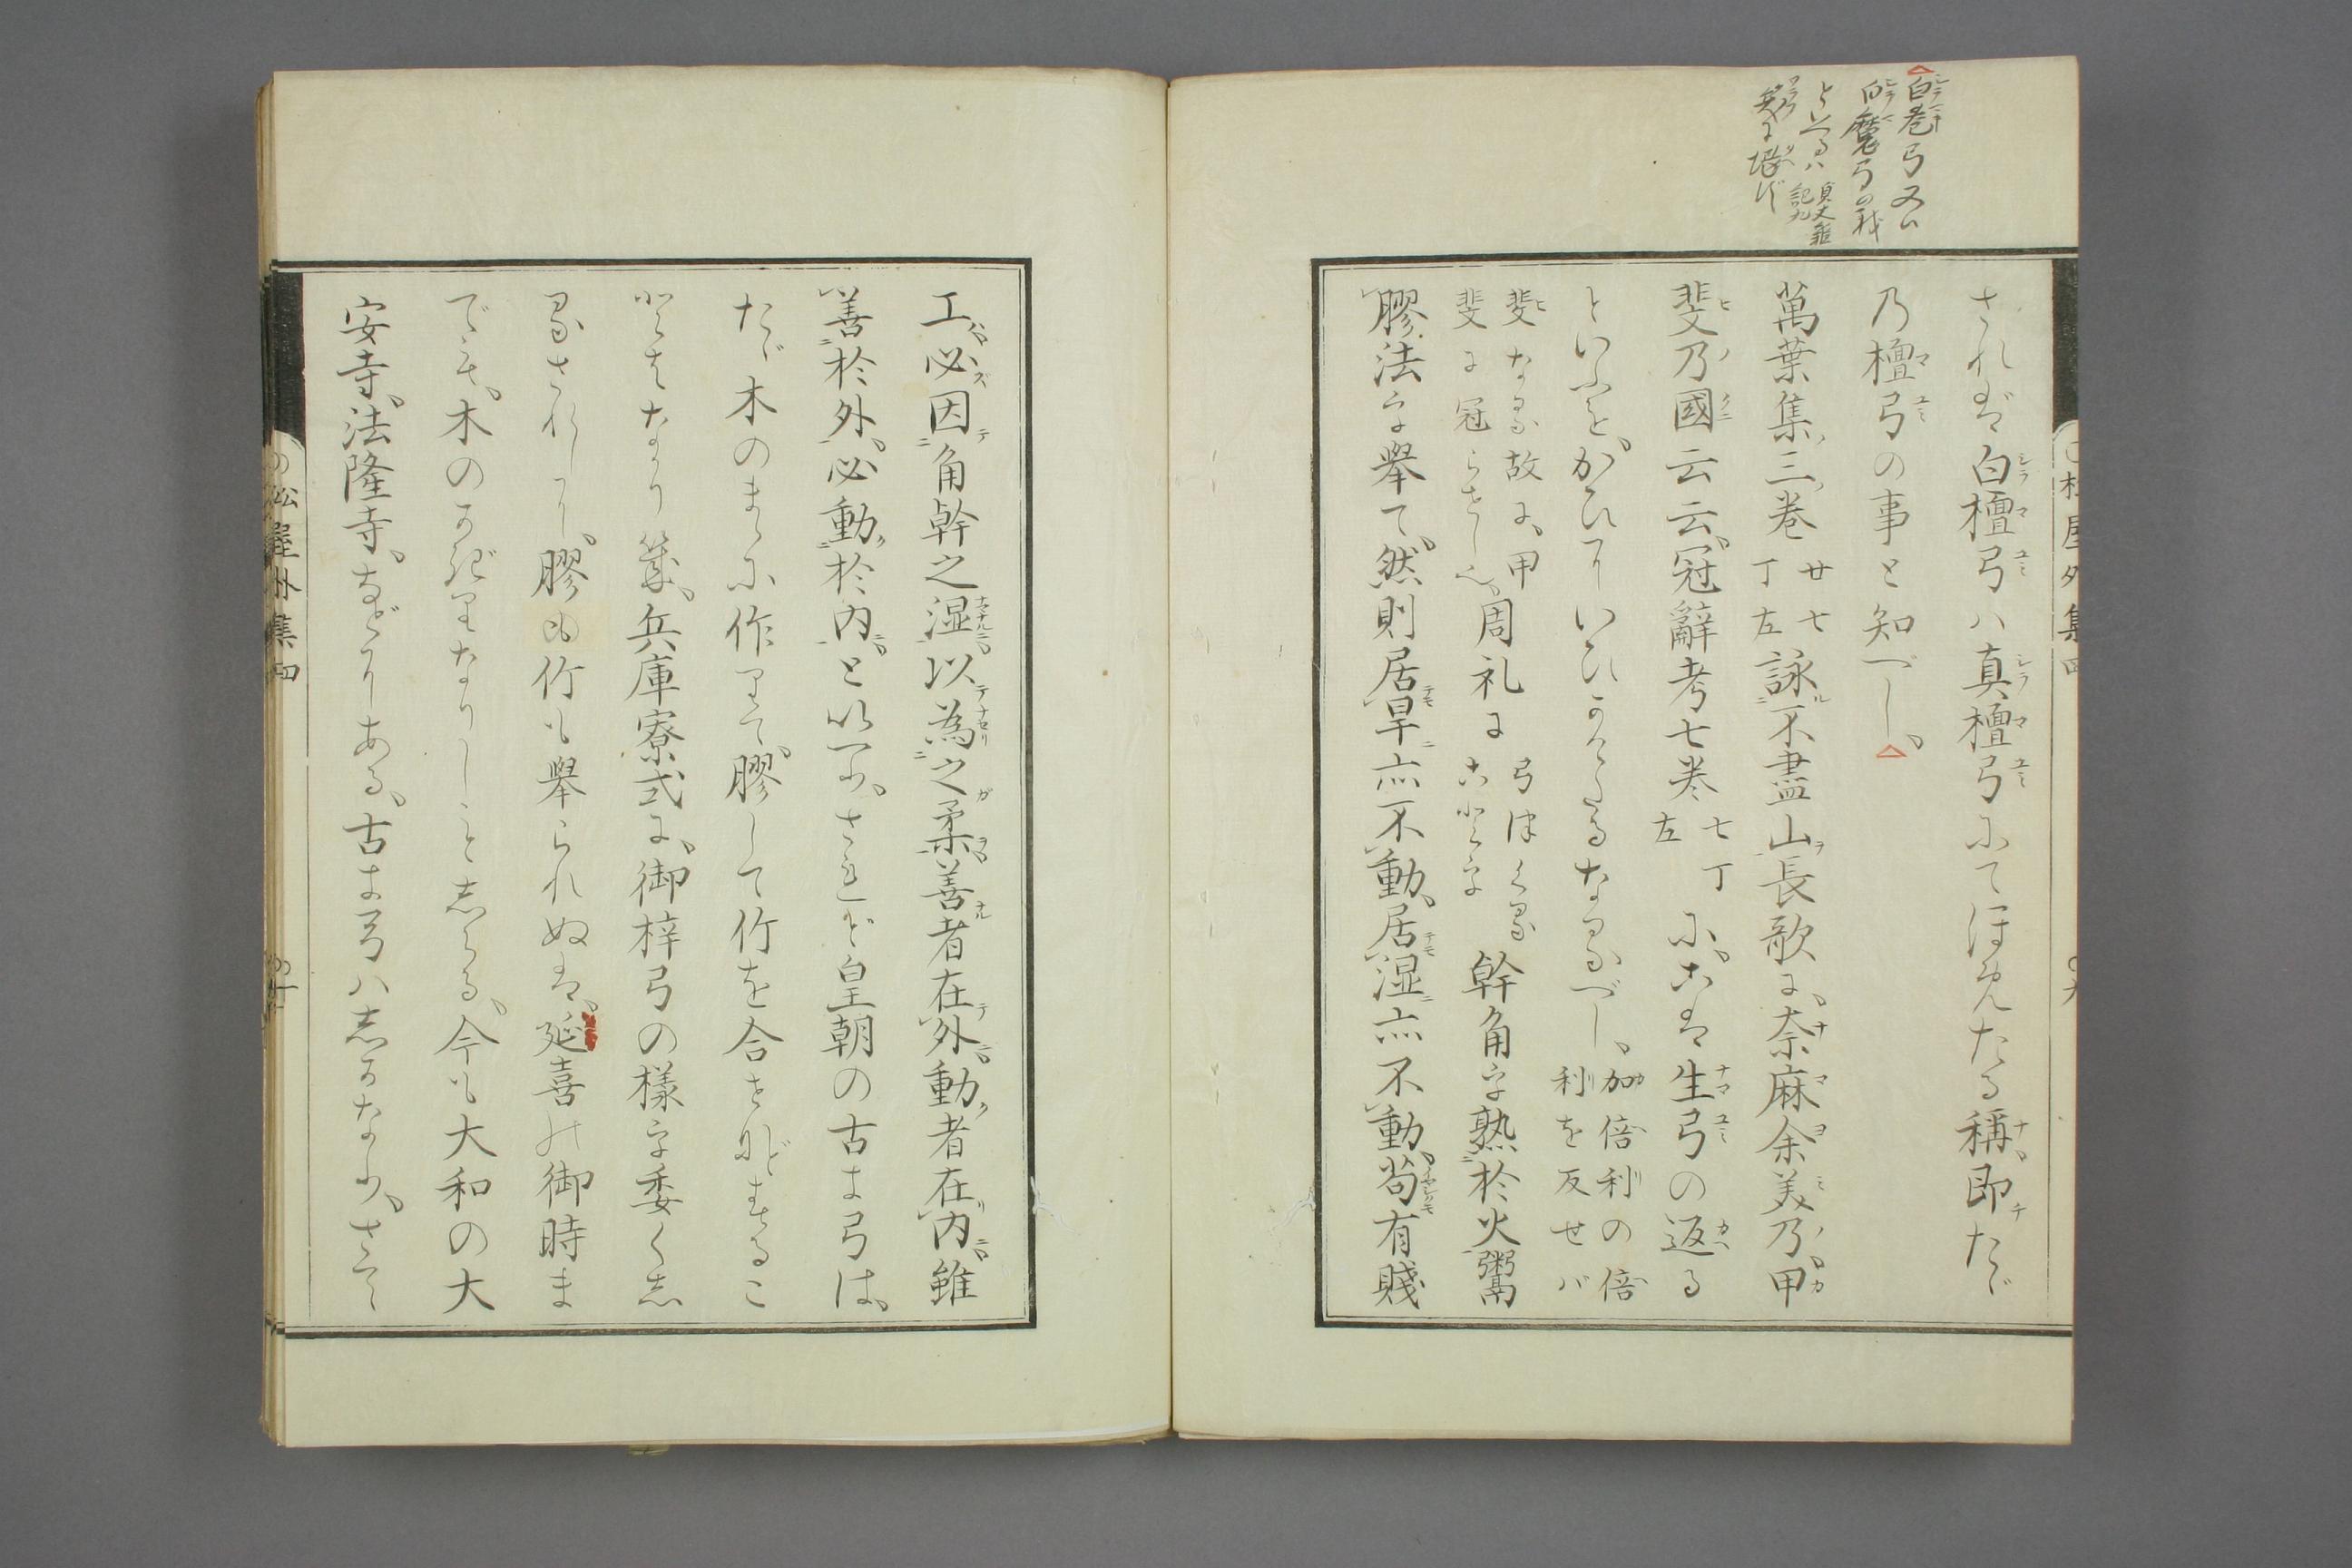 白巻弓又ハ
白麿弓の我
といへるハ貞丈雑記九
されば白檀弓ハ真檀弓にてほめたる稱、即たゞ
乃檀弓の事と知べし、
萬葉集三巻廿七丁左詠不盡山長歌に、奈麻余美乃甲
斐乃國云云、冠辭考七巻七丁左に、こは生弓の返る
といふを、かひにいひかけたるなるべし、加倍利の倍利を反せバ
斐なる故に、甲斐に冠らせし也、周礼に弓つくることを幹角を熟於火鬻
膠法を舉て、然則居旱亦不動、居湿亦不動、苟有賤
工必因角幹之湿以為之柔善者在外、動者在内雖
善於外、必動於内、と以へり、されど皇朝の古き弓は、
たゞ木のまゝに作りて、膠して竹を合せなどすること
はなかりき、兵庫寮式に、御梓弓の様を委くし
るされしに、膠も竹も舉られぬは、延喜の御時ま
でも、木のかぎりなりしことしらる、今も大和の大
安寺、法隆寺、などにある、古き弓ハしかなり、さて
松屋外集四
松屋外集四